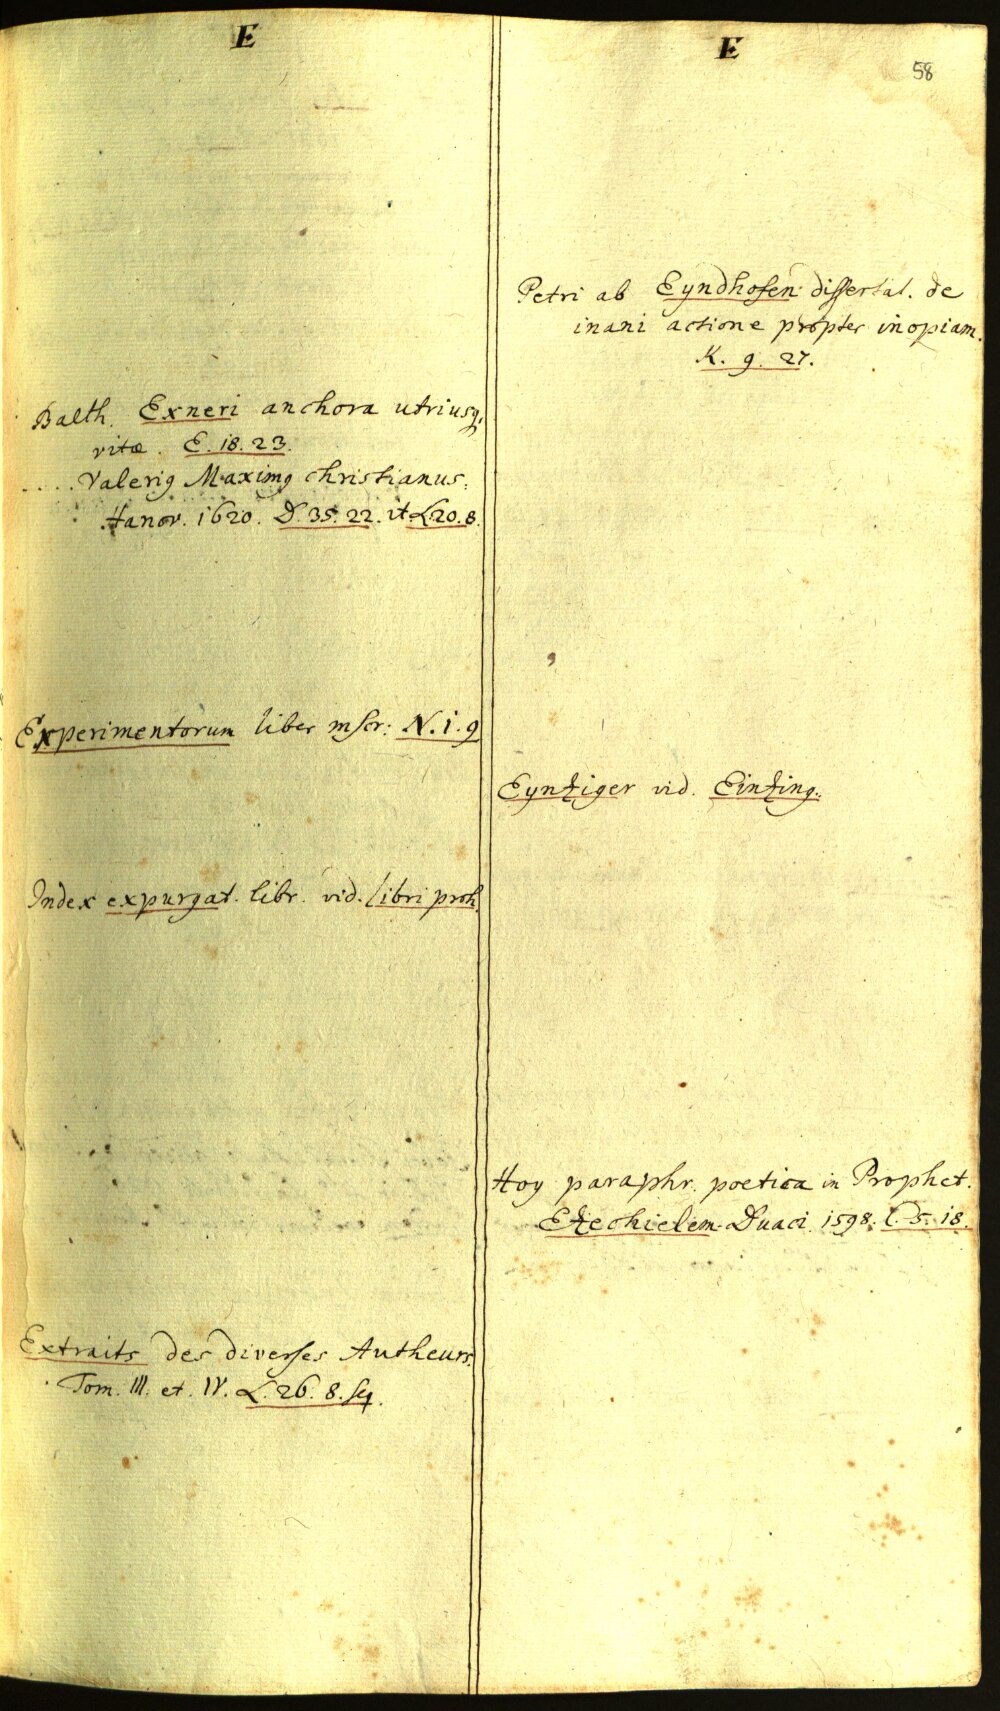 E
Balth. Exneri anchora utriusq,
vitæ. E. 18. 23.
.... Valerig Maximg christianus.
Hanov. 1620. D. 35. 22. it L. 20. 8.
Experimentorum liber mscr: N. i. 9
Index expurgat. libr. vid. libri proh.
Extraits des diverses Autheurs.
Tom. III. et. IV. L. 26. 8. sq.
E
58
Petri ab Eyndhofen dissertat. de
inani actione propter inopiam.
K. 9. 27.
Eyntziger vid. Eintzing.
Hoy paraphr. poetica in Prophet.
Etzechielem. Duaci. 1598. C. 5. 18.